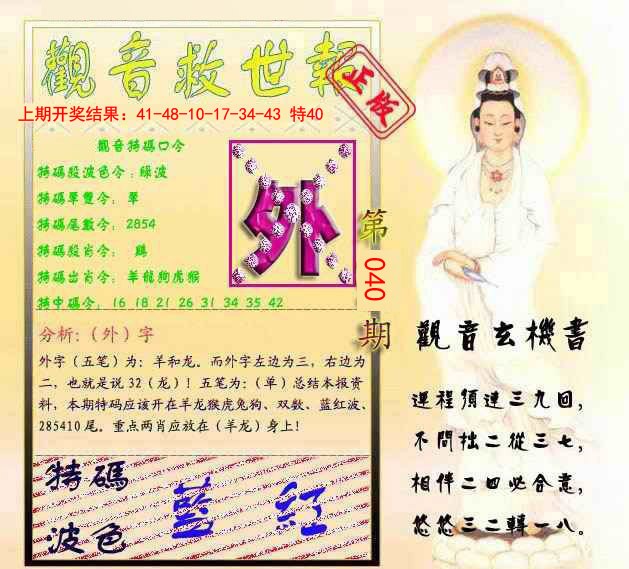 觀音救世報
正版
上期开奖结果：41-48-10-17-34-43 特40
觀音特碼口令
特碼殺波色令：綠波
特碼單雙令：單
特碼尾數令：2854
特碼殺肖令：鷄
特碼出肖令：羊龍狗虎猴
特中碼令：16 18 21 26 31 34 35 42
外
第040期
分析：（外）字
外字（五笔）为：羊和龙。而外字左边为三，右边为
二，也就是说32（龙）！五笔为：（单）总结本报资
料，本期特码应该开在羊龙猴虎兔狗、双数、蓝红波、
285410尾。重点两肖应放在（羊龙）身上！
特碼
波色
藍 紅
觀音玄機書
運程須達三九回，
不問拙二從三七，
相伴二四必合意，
悠悠三二轉一八。